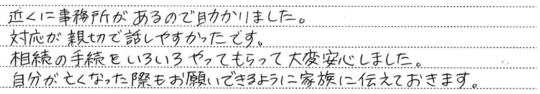 近くに事務所があるので助かりました。
対応が親切で話しやすかったです。
相続の手続をいろいろやってもらって大変安心しました。
自分が亡くなった際もお願いできるように家族に伝えておきます。